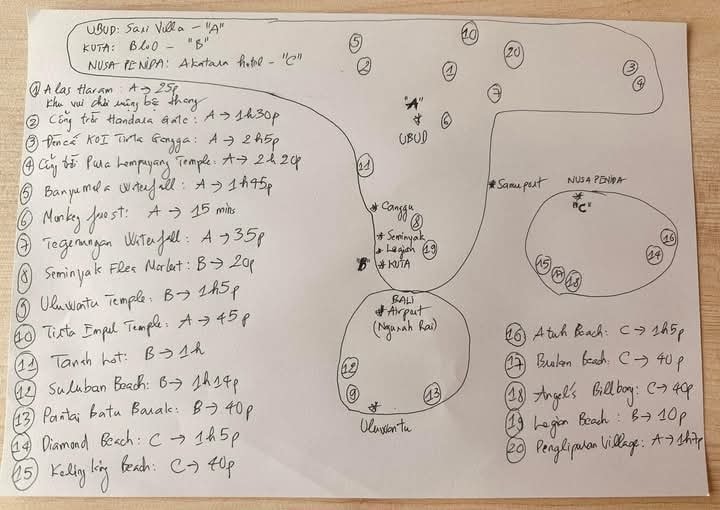 UBUD: Sari Villa - "A"
KUTA: BLOO - "B"
NUSA PENIDA: Akatara hotel - "C"
① Alas Haram: A → 25p
khu vui chơi mộng bậc thang
② Cổng trời Handara Gate: A → 1h30p
③ Đền cá KOI Tirta Gangga: A → 2h5p
④ Cổng trời Pura Lempuyang Temple: A → 2h20p
⑤ Banyumala Waterfall: A → 1h45p
⑥ Monkey forest: A → 15 mins
⑦ Tegenungan Waterfall: A → 35p
⑧ Seminyak Flea Market: B → 20p
⑨ Uluwatu Temple: B → 1h5p
⑩ Tirta Empul Temple: A → 45p
⑪ Tanah Lot: B → 1h
⑫ Suluban Beach: B → 1h14p
⑬ Pantai Batu Barak: B → 40p
⑭ Diamond Beach: C → 1h5p
⑮ Kelingking Beach: C → 40p
⑤
②
⑩
①
⑳
⑦
③
④
"A"
UBUD
⑥
⑪
Canggu
⑧
Seminyak
Legian
⑲
"B"
KUTA
Sanur port
NUSA PENIDA
"C"
⑯
⑭
⑮
⑰
⑱
BALI
Airport
(Ngurah Rai)
⑫
⑨
⑬
Uluwatu
⑯ Atuh Beach: C → 1h5p
⑰ Broken Beach: C → 40p
⑱ Angel's Billbong: C → 40p
⑲ Legian Beach: B → 10p
⑳ Penglipuran Village: A → 1h7p